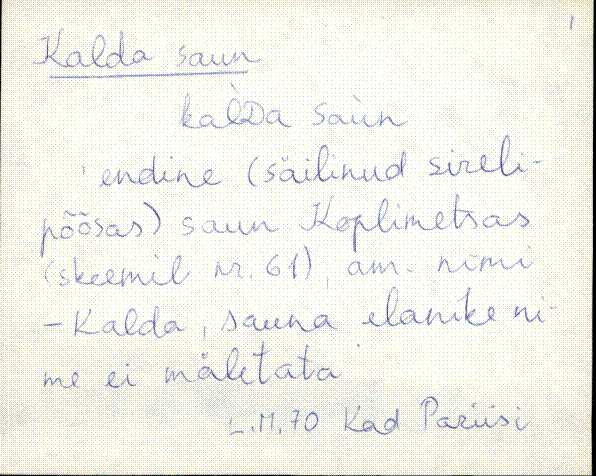 1
Kalda saun
kal̀Da saùn
endine (säilinud sireli-
põõsas) saun Koplimetsas
(skeemil nr. 61), am. nimi
- Kalda, sauna elanike ni-
me ei mäletata
L.M, 70 Kad Pariisi